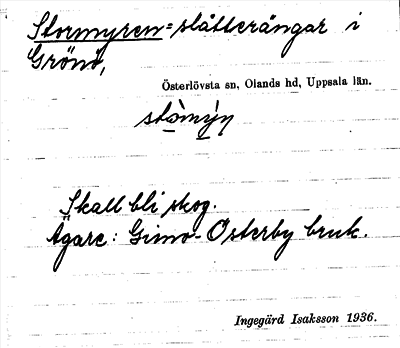 Stormyren=slåtterängar i
Grönö,
Österlövsta sn, Olands hd, Uppsala län.
stòmýn
Skall bli skog.
Ägare: Gimo-Österby bruk.
Ingegärd Isaksson 1936.